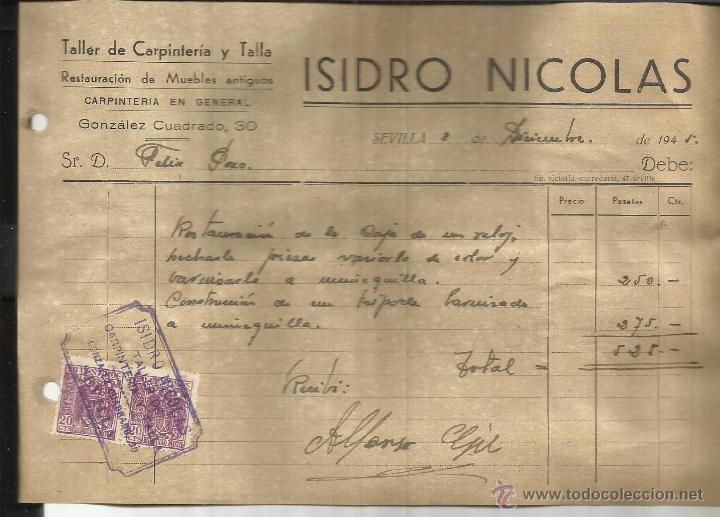 Taller de Carpintería y Talla
Restauración de Muebles antiguos
CARPINTERIA EN GENERAL
González Cuadrado, 30
ISIDRO NICOLAS
SEVILLA 3 DE Diciembre. de 1945.
Sr. D. Felix Pozo. Debe:
tip. victoria.-correduría, 47-sevilla
Precio Pesetas Cts.
Restauración de la Caja de un reloj,
hecharle piezas variarlo de color y
barnisarlo a muñequilla. 250.-
Construcción de un trípode barnizado
a muñequilla. 275.-
Total = 525.-
Recibí:
Alfonso Gil
ISIDRO NICOLAS
TALLER DE
CARPINTERIA
SEVILLA
20 CTS
20 CTS
www.todocoleccion.net